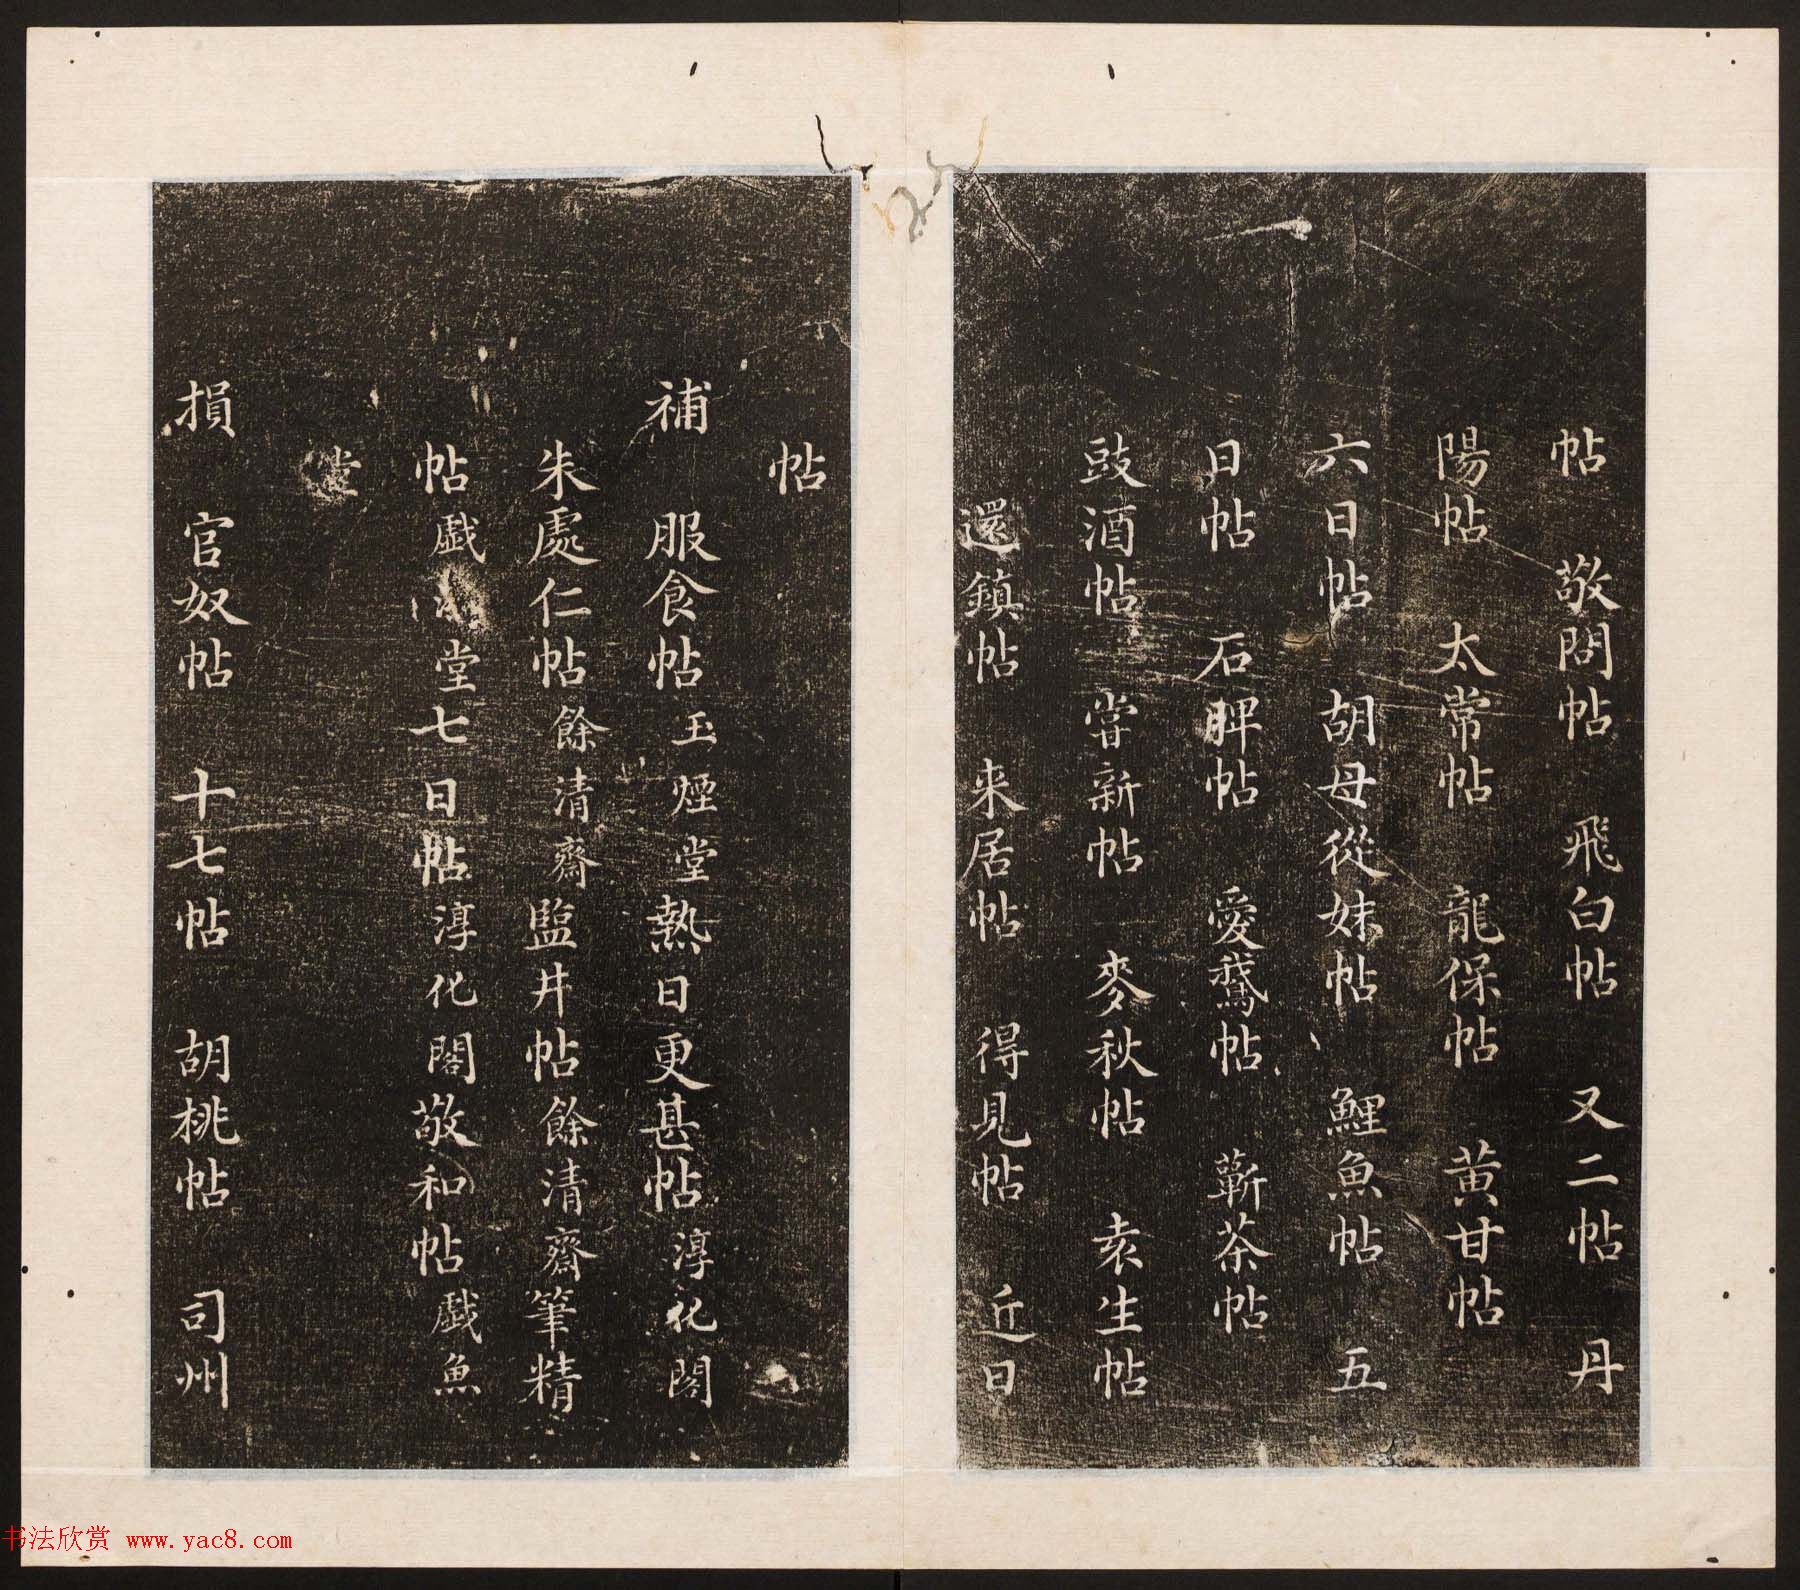 帖　敬問帖　飛白帖　又二帖　丹
陽帖　太常帖　龍保帖　黃甘帖
六日帖　胡母從妹帖　鯉魚帖　五
日帖　石脾帖　愛鵞帖　蘄茶帖
豉酒帖　嘗新帖　麥秋帖　袁生帖
還鎮帖　来居帖　得見帖　近日
帖
補　服食帖玉煙堂熱日更甚帖淳化閣
朱處仁帖餘清齋監井帖餘清齋筆精
帖戲堂七日帖淳化閣敬和帖戲魚
堂
損　官奴帖　十七帖　胡桃帖　司州
书法欣赏 www.yac8.com